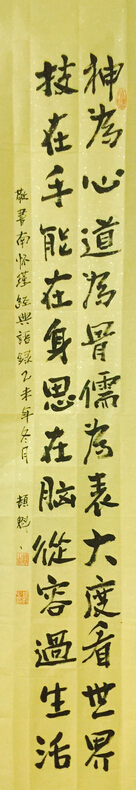 神為心道為骨儒為表大度看世界
技在手能在身思在脑從容過生活
敬書南怀瑾經典語錄乙未年冬月